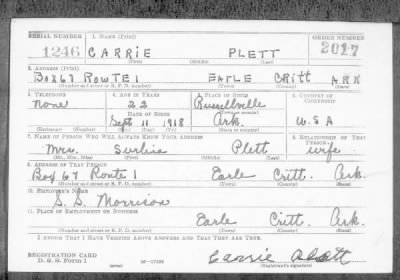 SERIAL NUMBER 1. NAME (Print) ORDER NUMBER
1246 CARRIE PLETT 2017
(First) (Middle) (Last)
2. ADDRESS (Print)
BOX 67 ROWTE 1 EARLE CRITT ARK
(Number and street or R. F. D. number) (Town) (County) (State)
3. TELEPHONE 4. AGE IN YEARS 5. PLACE OF BIRTH 6. COUNTRY OF CITIZENSHIP
None 22 Russellville
DATE OF BIRTH (Town or county)
Sept 11 1918 Ark. U.S.A
(Exchange) (Number) (Mo.) (Day) (Yr.) (State or country)
7. NAME OF PERSON WHO WILL ALWAYS KNOW YOUR ADDRESS 8. RELATIONSHIP OF THAT PERSON
Mrs. Plett wife
(Mr., Mrs., Miss) (First) (Middle) (Last)
9. ADDRESS OF THAT PERSON
Box 67 Route 1 Earle Critt. Ark.
(Number and street or R. F. D. number) (Town) (County) (State)
10. EMPLOYER'S NAME
S. S. Morrison
11. PLACE OF EMPLOYMENT OR BUSINESS
Earle Critt. Ark.
(Number and street or R. F. D. number) (Town) (County) (State)
I AFFIRM THAT I HAVE VERIFIED ABOVE ANSWERS AND THAT THEY ARE TRUE.
REGISTRATION CARD
D. S. S. Form 1 Carrie
(Registrant's signature)